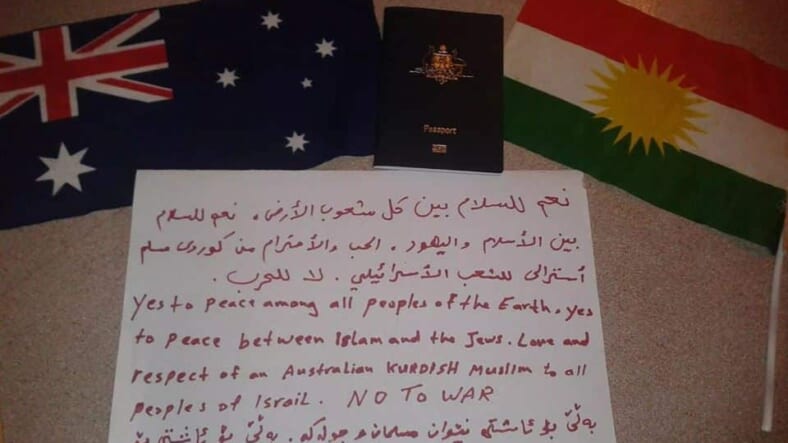 Passport
نعم للسلام بين كل شعوب الأرض. نعم للسلام
بين الأسلام واليهود. الحب والأحترام من كوردي مسلم
أسترالي للشعب الأسرائيلي. لا للحرب.
Yes to peace among all peoples of the Earth. yes
to peace between Islam and the Jews. Love and
respect of an Australian KURDISH Muslim to all
peoples of Israil. NO TO WAR
بەڵێ بۆ ئاشتی نێوان مسلمان و جولەکە. بەڵێ بۆ ئاشتی